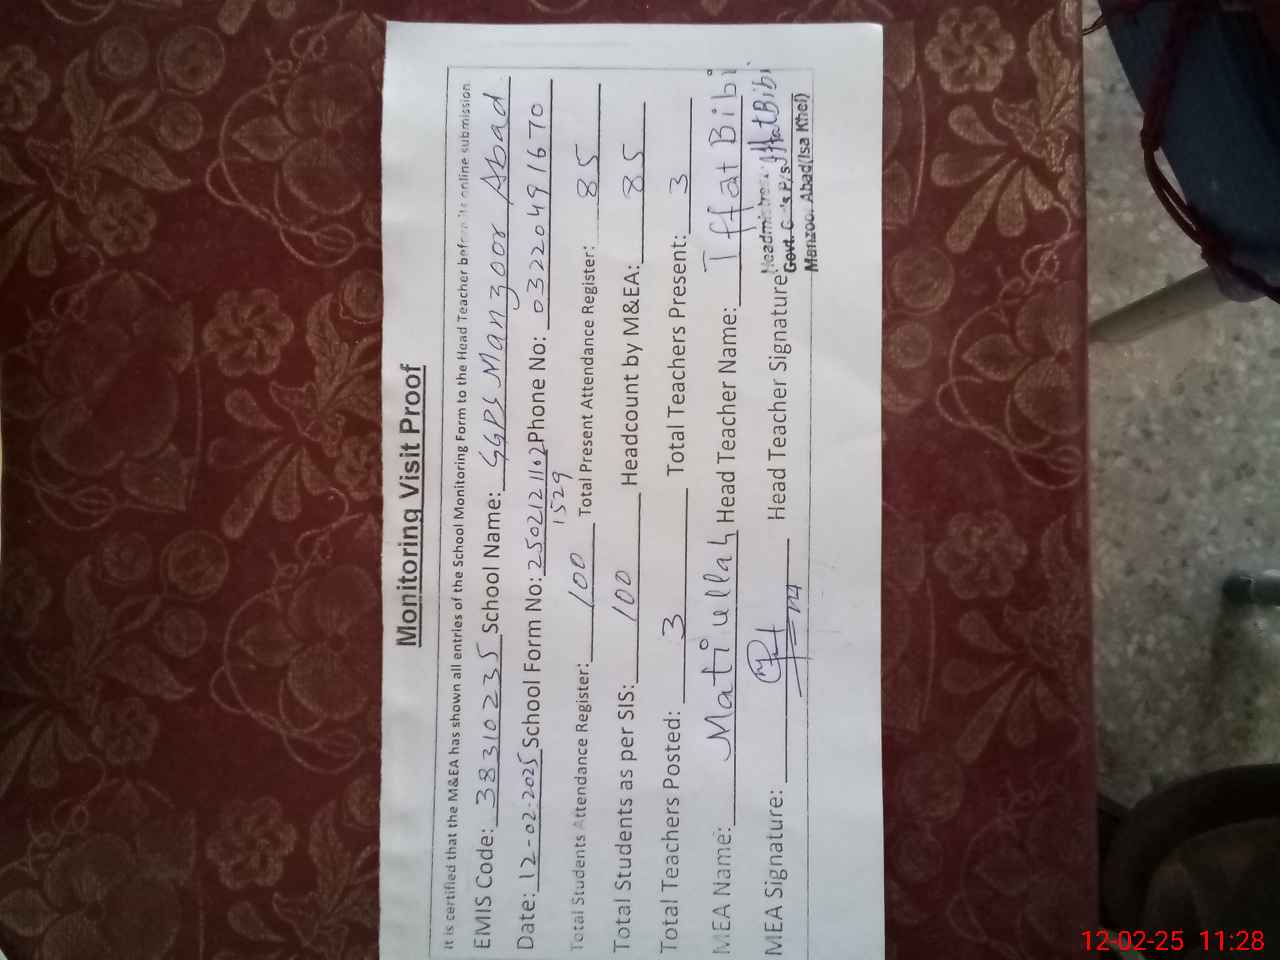 Monitoring Visit Proof
It is certified that the M&EA has shown all entries of the School Monitoring Form to the Head Teacher before its online submission.
EMIS Code: 38310235 School Name: GGPS Manzoor Abad
Date: 12-02-2025 School Form No: 2502121102 Phone No: 03220491670
1529
Total Students Attendance Register: 100 Total Present Attendance Register: 85
Total Students as per SIS: 100 Headcount by M&EA: 85
Total Teachers Posted: 3 Total Teachers Present: 3
MEA Name: Matiullah Head Teacher Name: Iffat Bibi
MEA Signature: Head Teacher Signature: Iffat Bibi
Headmistress
Govt. Girls P/s
Manzoor Abad (Isa Khel)
12-02-25 11:28